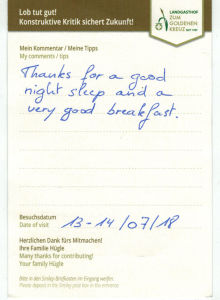 Lob tut gut!
Konstruktive Kritik sichert Zukunft!
LANDGASTHOF
ZUM
GOLDENEN
KREUZ
Mein Kommentar / Meine Tipps
My comments / tips
Thanks for a good
night sleep and a
very good breakfast.
Besuchsdatum
Date of visit
13-14/07/18
Herzlichen Dank fürs Mitmachen!
Ihre Familie Hügle
Many thanks for contributing!
Your family Hügle
Bitte in den Smiley-Briefkasten im Eingang werfen.
Please deposit in the Smiley post box in the entrance